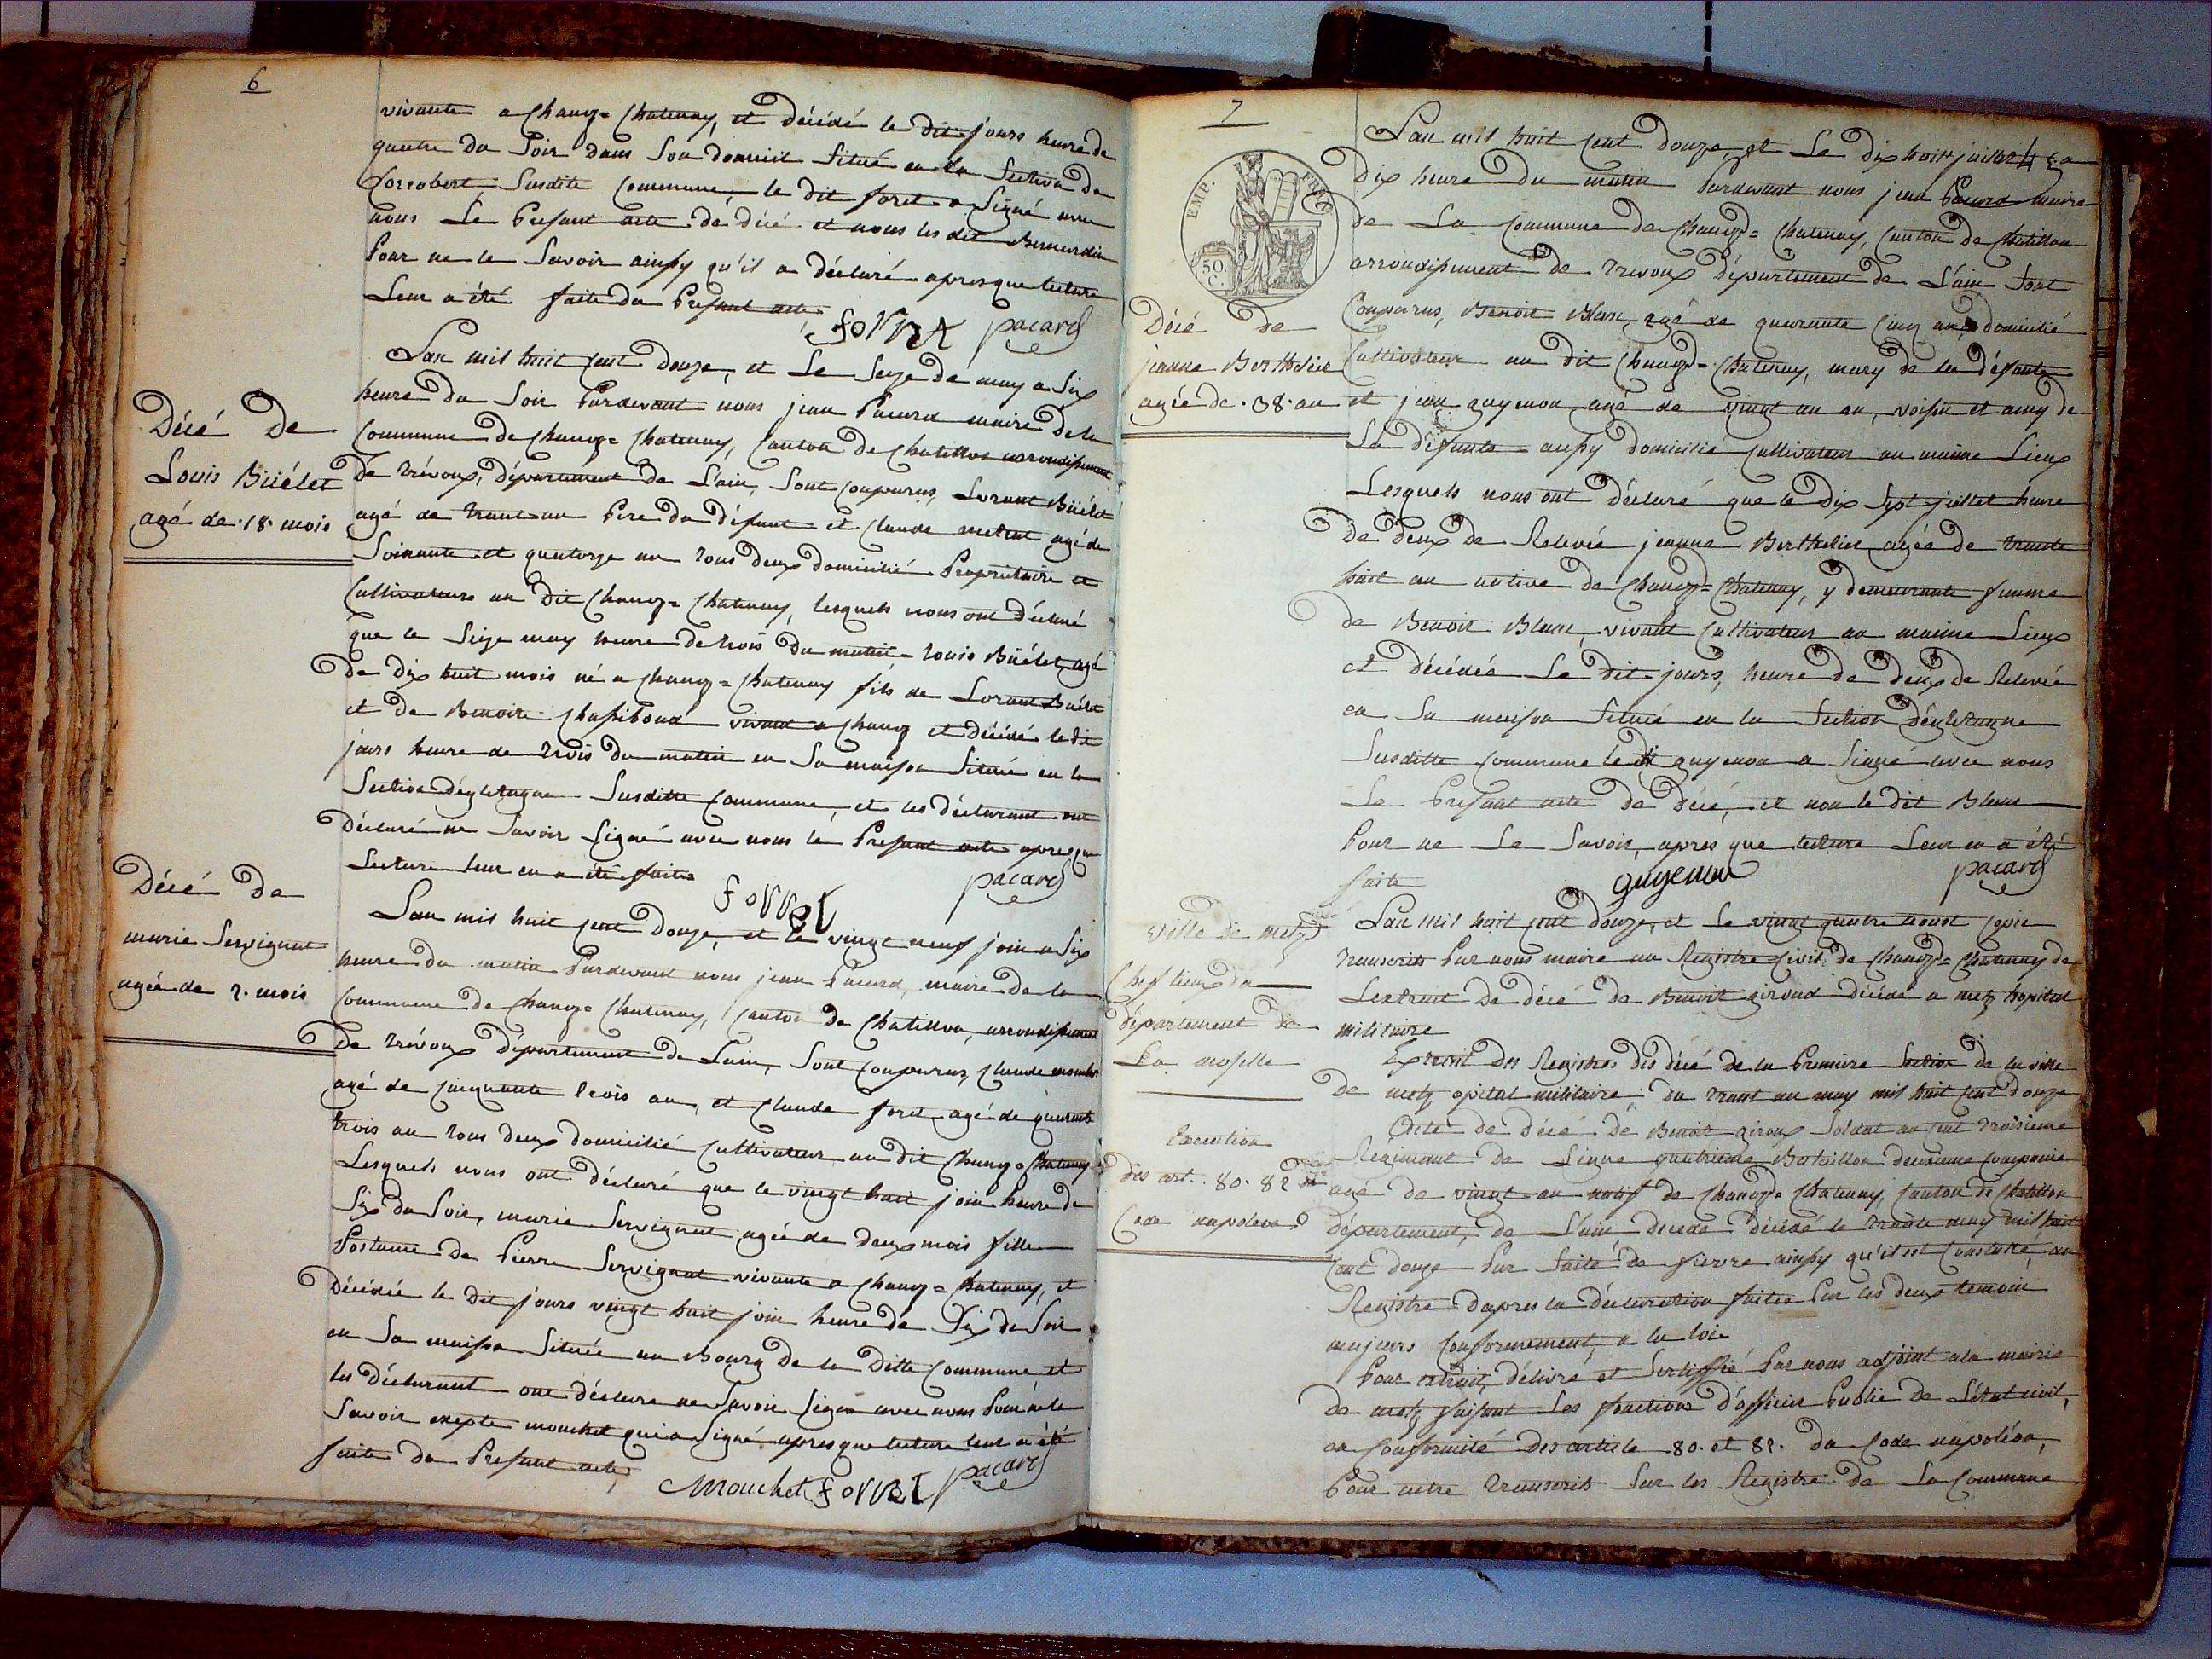 6
vivante a Chanoz=Chatenay, et décédé le dit jours heure de
quatre du Soir dans Son domicil Situé en la Section de
Susdite Commune, le dit foret a Signé avec
nous Le Présant acte de décé et nous les dit Bernardin
Pour ne le Savoir ainsy qu'il a déclaré apres que lecture
Leur a été faite du Présant acte
forrt pacard
Décé De
Louis Büélet
agé de .18. mois
Lan mil huit Cent Douze, et Le Seize de may a Six
heure du Soir Pardevant nous jean Pacard maire de la
Commune de Chanoz=Chatenay, Canton de Chatillon arrondissement
de trévoux, département de L'ain, Sont Comparus, Lorant Büélet
agé de trante an Pere du défunt et Claude metrat agé de
Soixante et quatorze an tous deux domicilié Propriétaire et
Cultivateurs au dit Chanoz=Chatenay, lesquels nous ont déclaré
que le Seize may heure de trois du matin Louis Büélet, agé
de dix huit mois né a Chanoz=Chatenay fils de Lorant Büélet
et de Benoite Chassiboud vivant a Chanoz et décédé le dit
jours heure de trois du matin en Sa maison Située en la
Section dégletagne Susditte Commune, et les déclarant ont
déclaré ne Savoir Signé avec nous le Présant acte apres que
Lecture leur en a été faite
forret pacard
Décé De
marie Servignat
agée de 2. mois
Lan mil huit Cent Douze, et le vingt neuf join a Six
heure du matin Pardevant nous jean Pacard, maire de la
Commune de Chanoz=Chatenay, Canton de Chatillon, arrondissement
De trévoux département de Lain, Sont Comparus, Claude mouchet
agé de Cinquante trois an, et Claude foret agé de quarante
trois an tous deux domicilié Cultivateur au dit Chanoz=Chatenay
Lesquels nous ont déclaré que le vingt huit join heure de
Six du Soir, marie Servignat agée de deux mois fille
Postume de Pierre Servignat vivante a Chanoz=Chatenay, et
décédée le dit jours vingt huit join heure de Six du Soir
en Sa maison Située au Bourg de la Ditte Commune, et
les déclarant ont déclare ne Savoir Signé avec nous Pour ne le
Savoir exepte mouchet qui a Signé apres que lecture leur a été
faite du Présant acte,
Mouchet forret pacard
7
EMP. FRANÇ.
50. C.
Décé De
jeanne Berthelier
agée de .38. an
Lan mil huit Cent douze, et Le dix huit juillet a
Dix heure du matin Pardevant nous jean Pacard maire
de La Commune de Chanoz=Chatenay, Canton de Chatillon
arrondissement de trévoux département de L'ain Sont
Comparus, Benoit Blanc agé de quarante Cinq an domicilié
Cultivateur au dit Chanoz=Chatenay, mary de la défunte
et jean guyenon agé de vingt un an, voisin et amy de
La défunte aussy domicilié Cultivateur au maime Lieux
Lesquels nous ont déclaré que le dix Sept juillet heure
De deux de Relevée jeanne Berthelier agée de trante
huit an native de Chanoz=Chatenay, y demeurante femme
de Benoit Blanc vivant Cultivateur au maime Lieux
et décédée Le dit jours, heure de deux de Relevée
en Sa maison Située en la Section dégletagne
Susditte Commune le dit guyenon a Signé avec nous
Le Présant acte de décé, et non le dit Blanc
Pour ne Le Savoir, apres que lecture Leur en a été
faite
guyenon pacard
Ville de metz
Chef lieux du
département de
La moselle
Execution
des art. 80. 82 du
Code napoleon
Lan mil huit Cent douze, et Le vingt quatre aoust Copie
transcrits Par nous maire au Registre Civit de Chanoz=Chatenay de
Lextrait de décé de Benoit giroud décédé a metz hopital
militaire
Extrait des Registres des décé de la Premiere Section de la ville
De metz opital militaire du trant un may mil huit Cent douze
Acte de décé de Benoit giroux Soldat au Cent troisieme
Regimant de Ligne quatrieme Bataillon deuxieme Compagnie
agé de vingt an natif de Chanoz=Chatenay Canton de Chatillon
département, de L'ain, décédé le trante may mil huit
Cent douze Par Suite de fievre ainsy qu'il est Constatté au
Registre Dapres la déclaration faites Par les deux temoin
majeurs Conformement, a la loie
Pour extrait, délivré et Sertiffié Par nous adjoint a la mairie
de metz faisant Les fonctions d'officier Public de L'état civil,
en Conformité des article 80. et 82. du Code napoléon,
Pour aitre transcrits Sur les Registre de La Commune